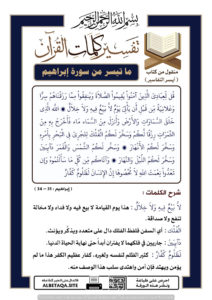 بسم الله الرحمن الرحيم
تفسير كلمات القرآن
منقول من كتاب
( أيسر التفاسير )
ما تيسر من سورة إبراهيم
قُل لِّعِبَادِيَ الَّذِينَ آمَنُوا يُقِيمُوا الصَّلَاةَ وَيُنفِقُوا مِمَّا رَزَقْنَاهُمْ سِرًّا
وَعَلَانِيَةً مِّن قَبْلِ أَن يَأْتِيَ يَوْمٌ لَّا بَيْعٌ فِيهِ وَلَا خِلَالٌ اللَّهُ الَّذِي
خَلَقَ السَّمَاوَاتِ وَالْأَرْضَ وَأَنزَلَ مِنَ السَّمَاءِ مَاءً فَأَخْرَجَ بِهِ مِنَ
الثَّمَرَاتِ رِزْقًا لَّكُمْ وَسَخَّرَ لَكُمُ الْفُلْكَ لِتَجْرِيَ فِي الْبَحْرِ بِأَمْرِهِ
وَسَخَّرَ لَكُمُ الْأَنْهَارَ وَسَخَّرَ لَكُمُ الشَّمْسَ وَالْقَمَرَ دَائِبَيْنِ
وَسَخَّرَ لَكُمُ اللَّيْلَ وَالنَّهَارَ وَآتَاكُم مِّن كُلِّ مَا سَأَلْتُمُوهُ وَإِن
تَعُدُّوا نِعْمَتَ اللَّهِ لَا تُحْصُوهَا إِنَّ الْإِنسَانَ لَظَلُومٌ كَفَّارٌ
( إبراهيم : 31 - 34 )
شرح الكلمات :
لَّا بَيْعٌ فِيهِ وَلَا خِلَالٌ : هذا يوم القيامة لا بيع فيه ولا فداء ولا مخالة
تنفع ولا صداقة.
الْفُلْكَ : أي السفن فلفظ الفلك دال على متعدد ويذكر ويؤنث.
دَائِبَيْنِ : جاريين في فلكهما لا يفتران أبدا حتى نهاية الحياة الدنيا.
لَظَلُومٌ كَفَّارٌ : كثير الظلم لنفسه ولغيره، كفار عظيم الكفر هذا ما لم
يؤمن ويهتد فإن آمن واهتدى سلب هذا الوصف منه.
ALBETAQA.SITE